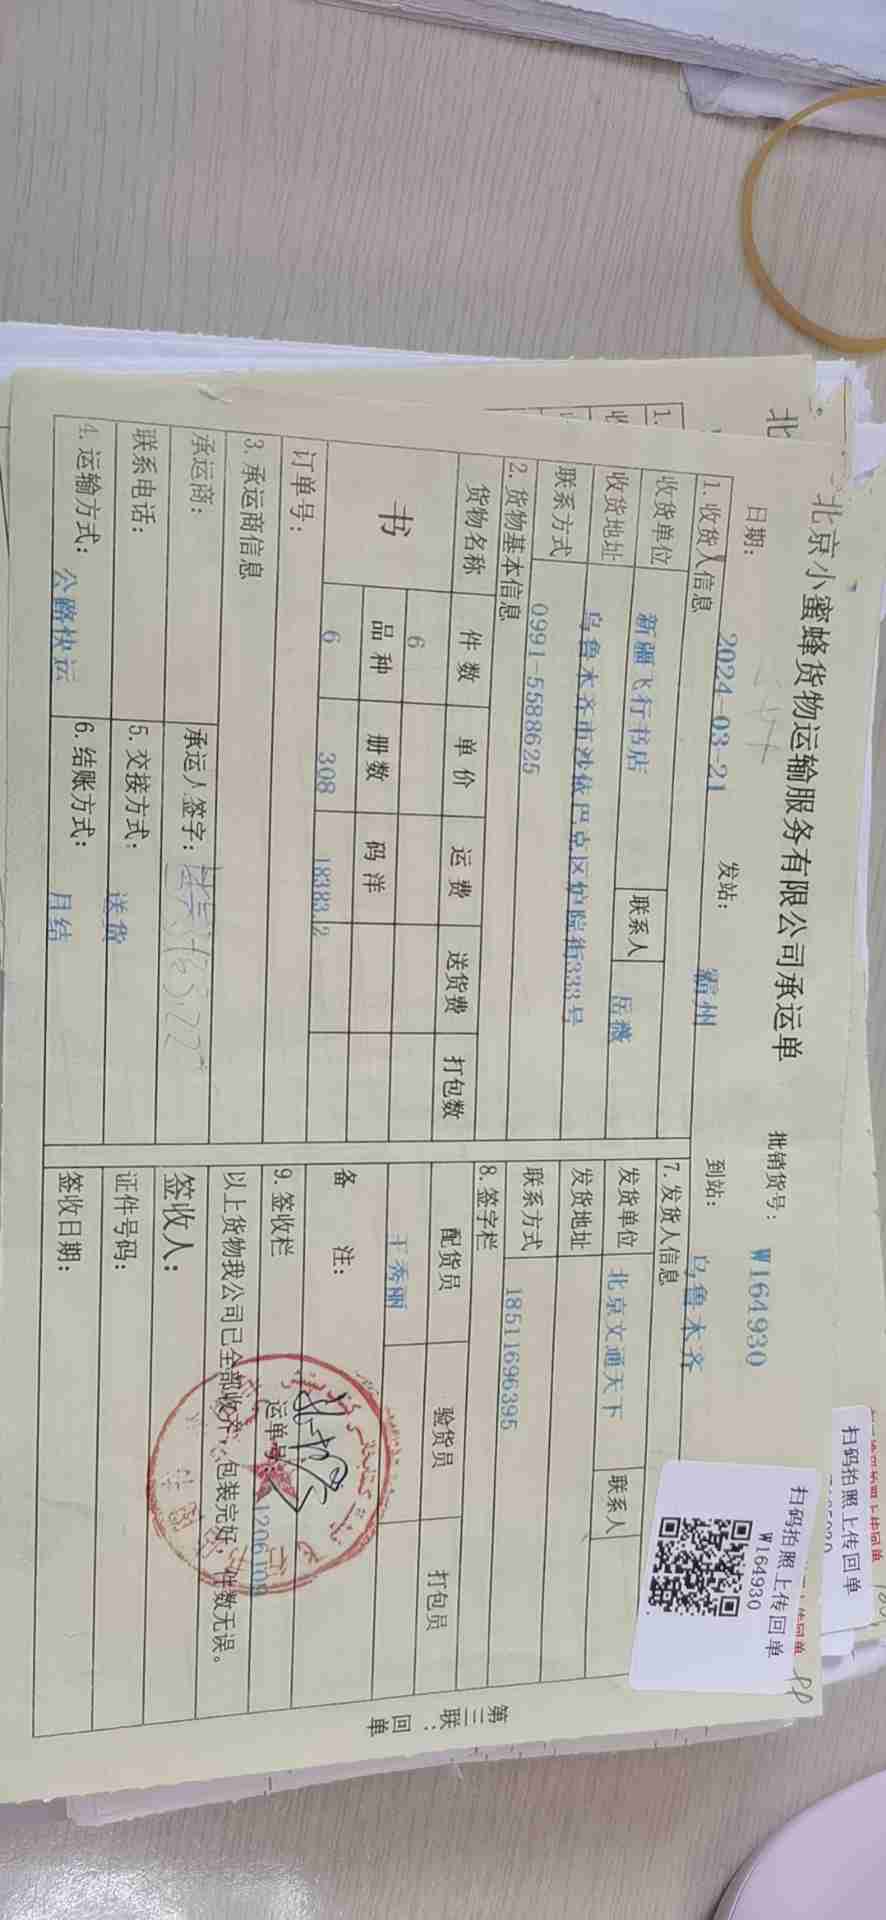 北京小蜜蜂货物运输服务有限公司承运单
批销货号: W164930
日期: 2024-03-21 发站: 霸州 到站: 乌鲁木齐
1. 收货人信息
收货单位 新疆飞行书店 联系人 岳薇
收货地址 乌鲁木齐市沙依巴克区炉院街333号
联系方式 0991-5588625
2. 货物基本信息
货物名称 件数 单价 运费 送货费 打包数
书 6
品种 册数 码洋
6 308 18383.2
订单号:
3. 承运商信息
承运商: 承运人签字:
联系电话: 5. 交接方式: 送货
4. 运输方式: 公路快运 6. 结账方式: 月结
7. 发货人信息
发货单位 北京文通天下 联系人
发货地址
联系方式 18511696395
8. 签字栏
配货员 验货员 打包员
王秀丽
备 注:
9. 签收栏 运单号:
以上货物我公司已全部收齐，包装完好，件数无误。
签收人:
证件号码:
签收日期:
第三联: 回单
扫码拍照上传回单
W164930
扫码拍照上传回单